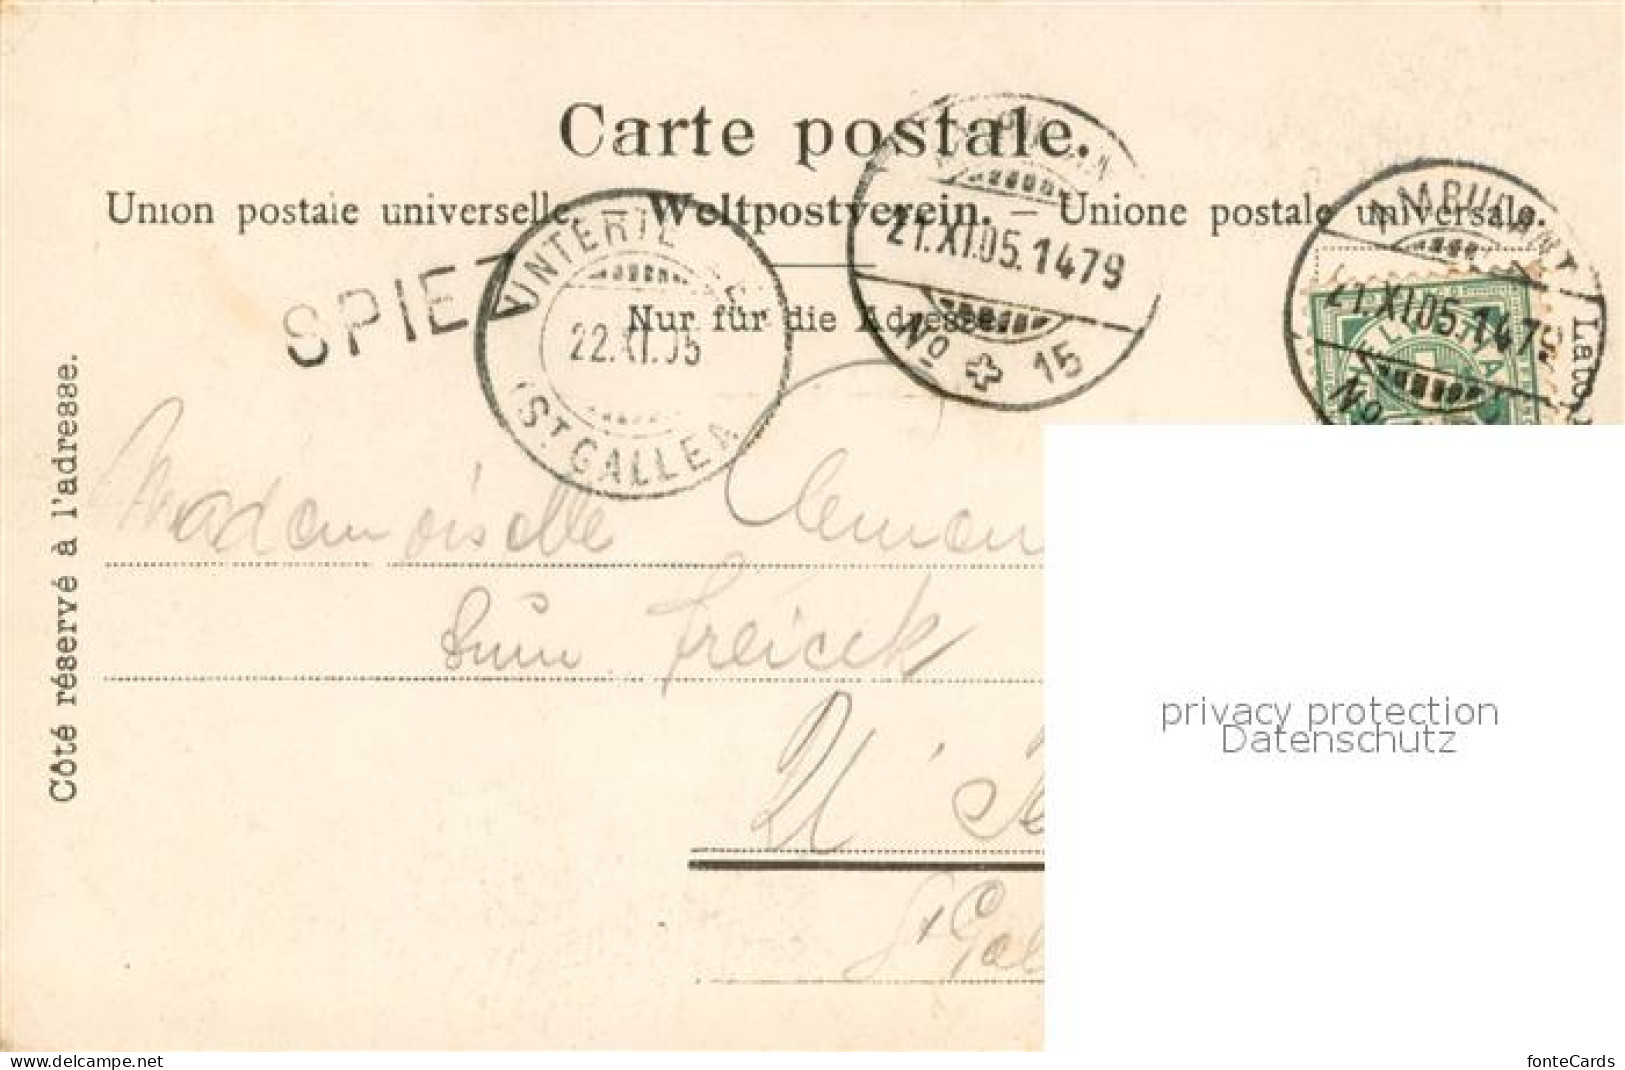 Carte postale.
Union postale universelle. — Weltpostverein. — Unione postale universale.
Nur für die Adresse
Côté réservé à l'adresse.
SPIEZ
22.XI.05
(ST GALLEN
21.XI.05.1479
No 15
AMBULANT
21.XI.05.1479
No
Lato
Mademoiselle
zum
St Gal
privacy protection
Datenschutz
www.delcampe.net
fonteCards